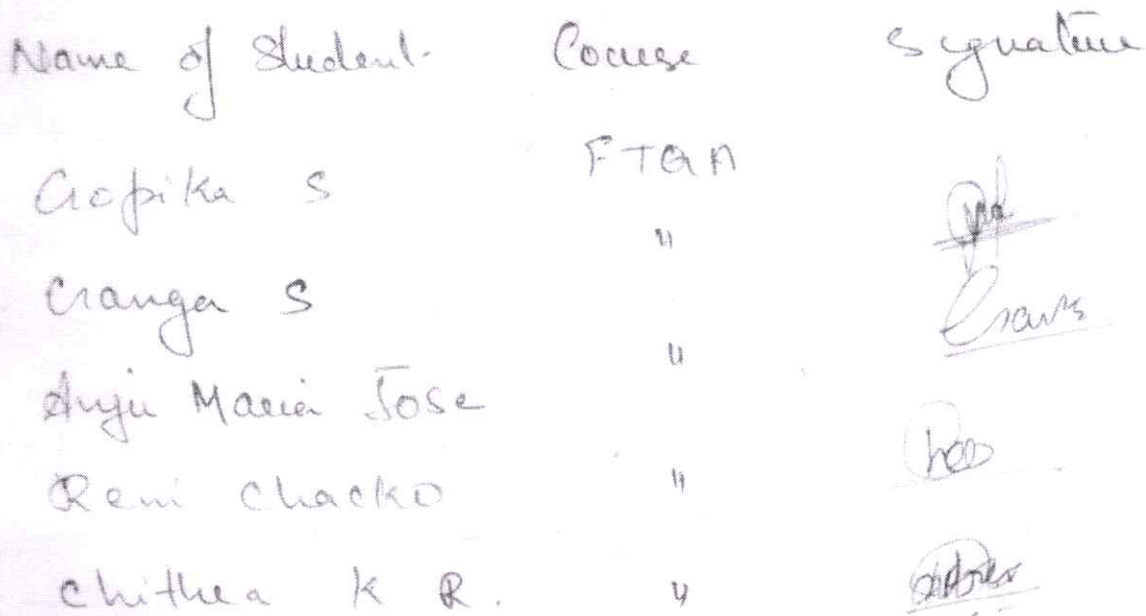 Name of Student Course Signature
Gopika S FTGA
Ganga S "
Anju Maria Jose "
Reni Chacko "
Chithra K R. "